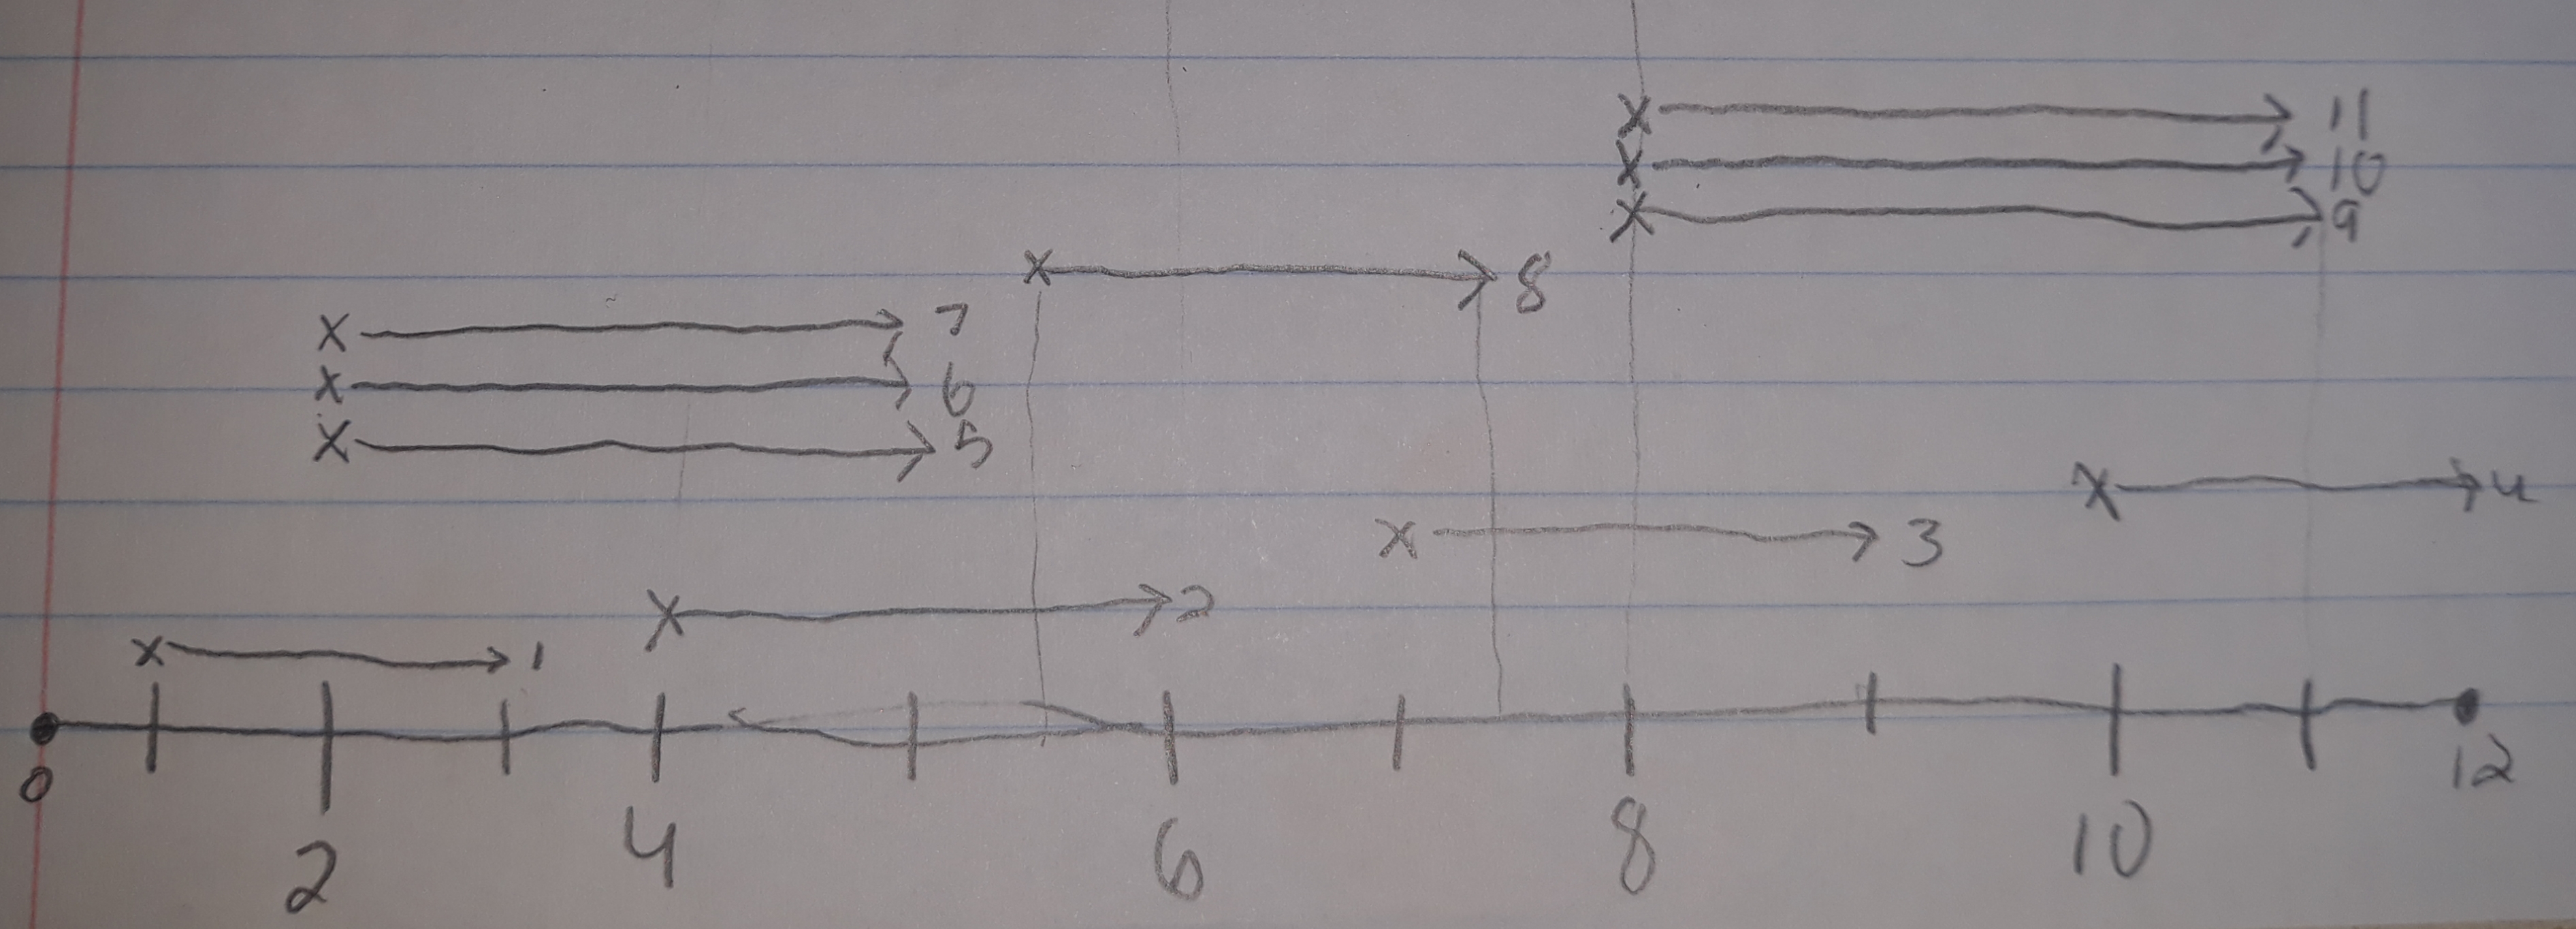 x 11
x 10
x 9
x 8
x 7
x 6
x 5
x 4
x 3
x 2
x 1
0 12
2 4 6 8 10